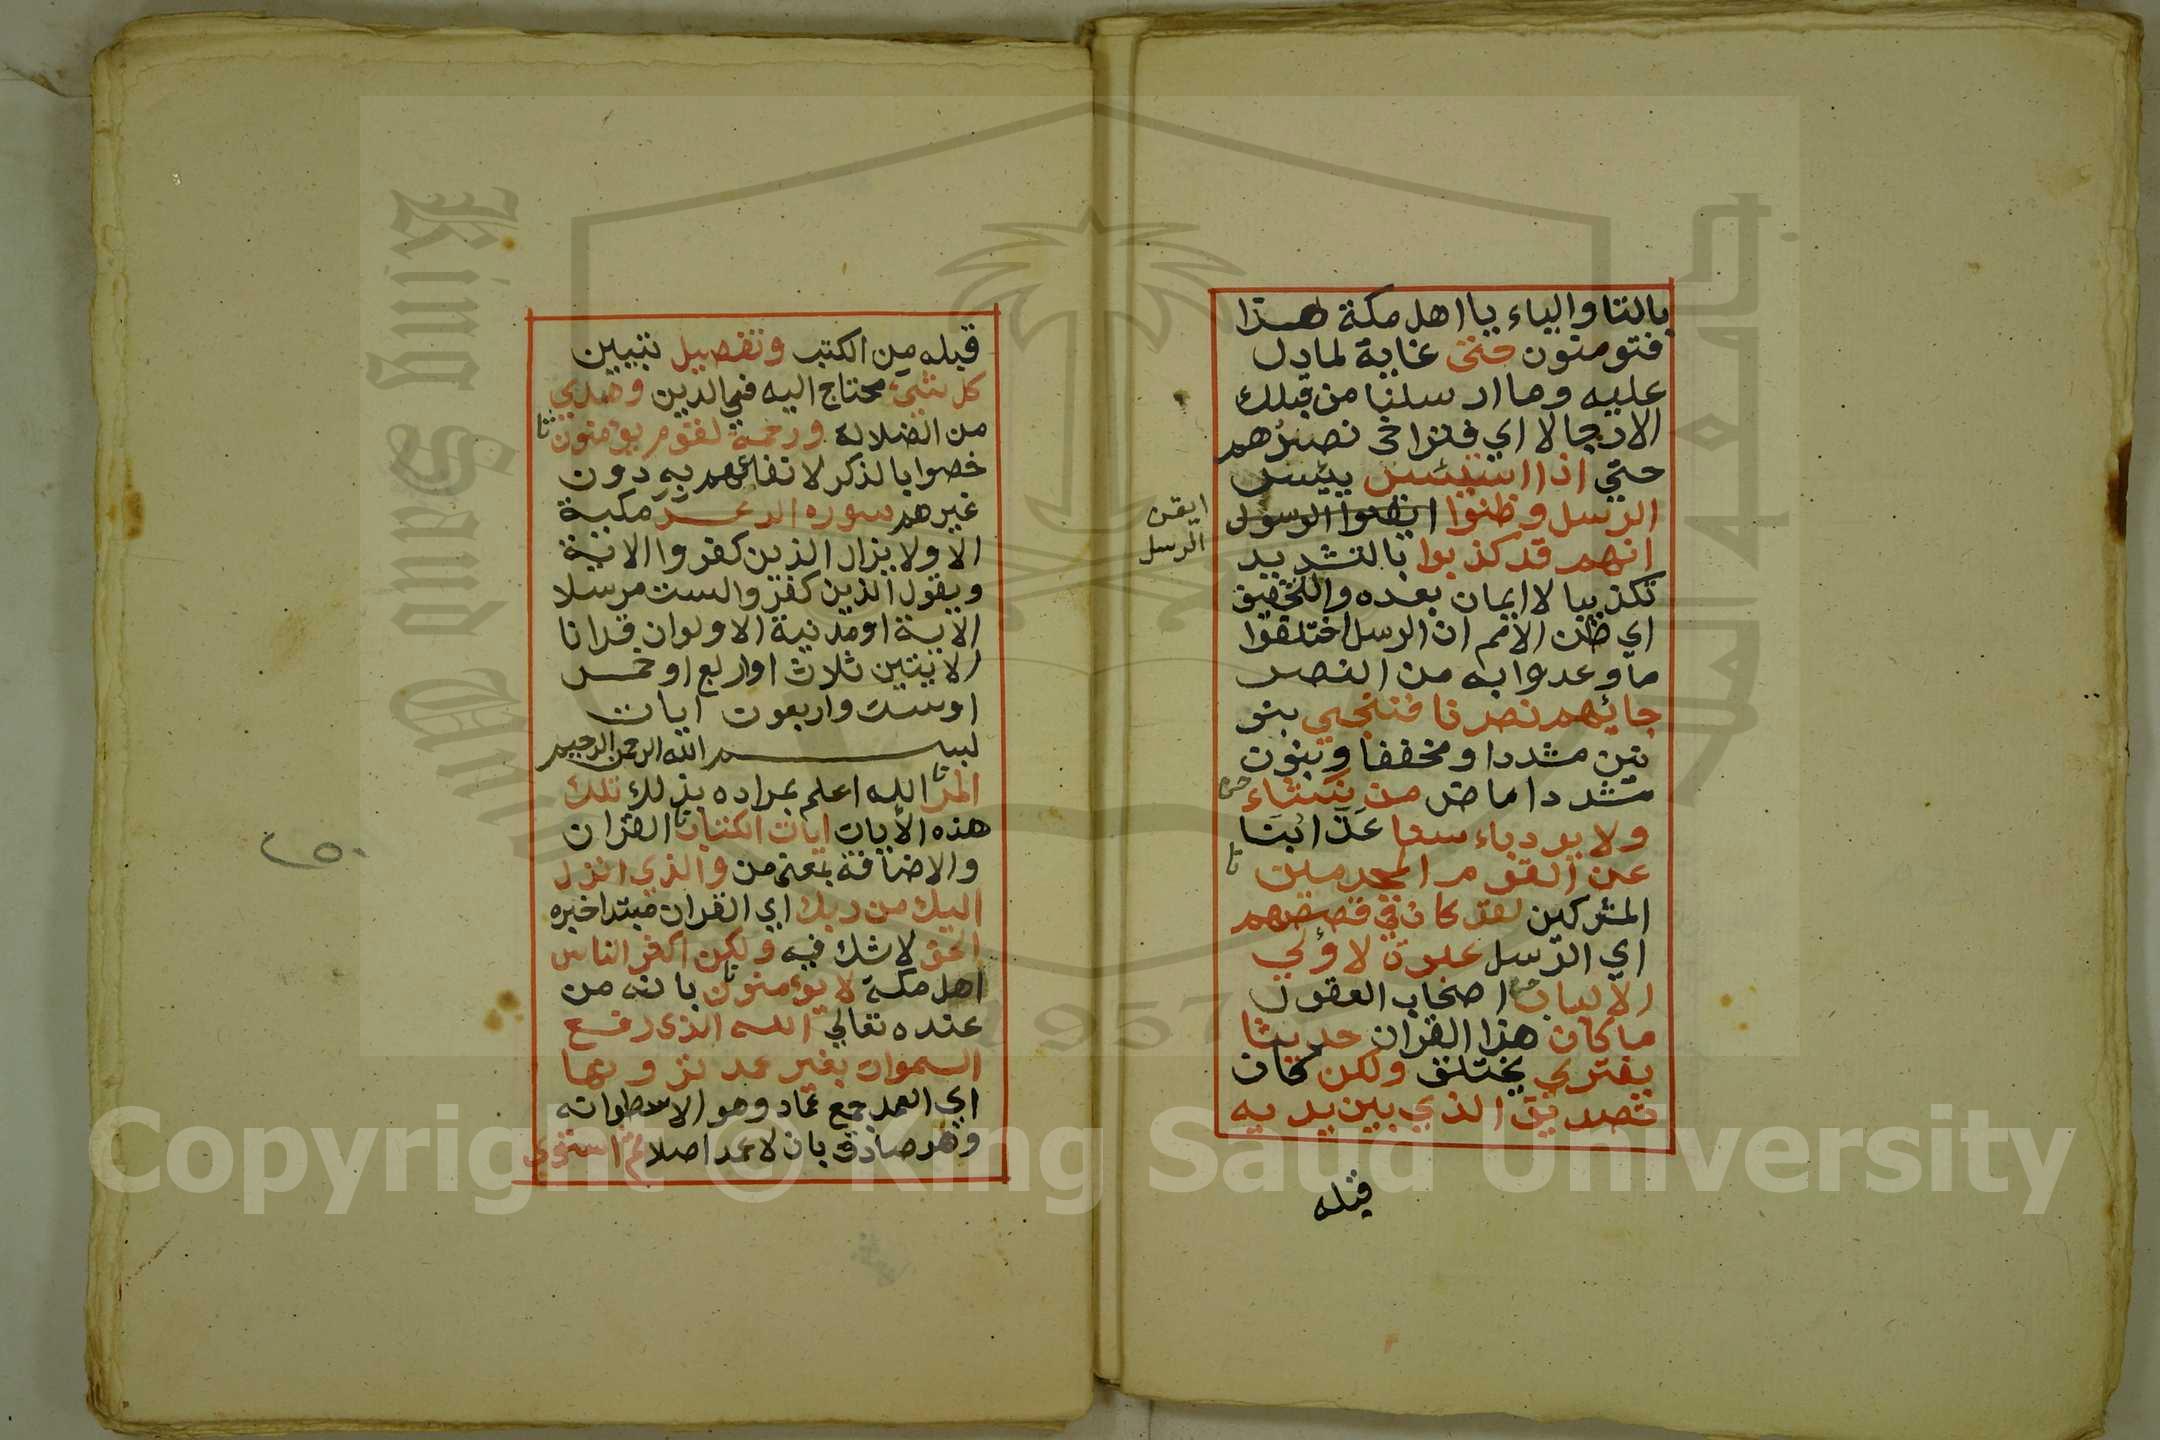 بالتا والياء يا اهل مكة هذا
فتومنون حتى غاية لما دل
عليه وما ارسلنا من قبلك
الا رجالا اي فتراخى نصرهم
حتي اذا استيئس ييئس
الرسل وظنوا ايقنوا الرسول
ايقن
الرسل
انهم قد كذبوا بالتشديد
تكذيبا لا ايمان بعده والتخفيف
اي ظن الامم ان الرسل اختلقوا
ما وعدوا به من النصر
جائهم نصرنا فننجي بنو
نين مشددا ومخففا وبنون
مشددا ماض من نشاء
ولا يرد باسنا عذابنا
عن القوم المجرمين
المشركين لقد كان في قصصهم
اي الرسل عبرة لاولي
الالباب اصحاب العقول
ما كان هذا القران حديثا
يفتري يختلق ولكن كان
تصديق الذي بين يديه
قبله
قبله من الكتب وتفصيل تبيين
كل شيئ محتاج اليه في الدين وهدي
من الضلالة ورحمة لقوم يؤمنون
خصوا بالذكر لانتفاعهم به دون
غيرهم سورة الرعد مكية
الا ولا يزال الذين كفروا الاية
ويقول الذين كفروا لست مرسلا
الاية او مدنية الا ولو ان قرانا
الايتين ثلاث او اربع او خمس
او ست واربعون ايات
بسم الله الرحمن الرحيم
المر الله اعلم بمراده بذلك تلك
هذه الايات ايات الكتاب القران
والاضافة بمعنى من والذي انزل
اليك من ربك اي القران مبتدا خبره
الحق لا شك فيه ولكن اكثر الناس
اهل مكة لا يؤمنون بانه من
عنده تعالي الله الذي رفع
السموات بغير عمد ترونها
اي العمد جمع عماد وهو الاسطوانه
وهو صادق بان لا عمد اصلا ثم استوى
King Saud University
جامعة الملك سعود
1957
Copyright © King Saud University